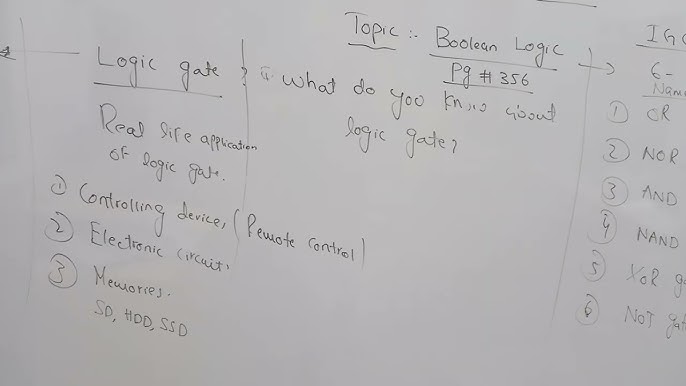 Topic :- Boolean Logic
Pg # 356
What do you know about
logic gate?
Logic gate
Real life application
of logic gate.
① Controlling device, (Remote control)
② Electronic circuit,
③ Memories.
SD, HDD, SSD
6-
① OR
② NOR
③ AND
④ NAND
⑤ XOR
⑥ NOT